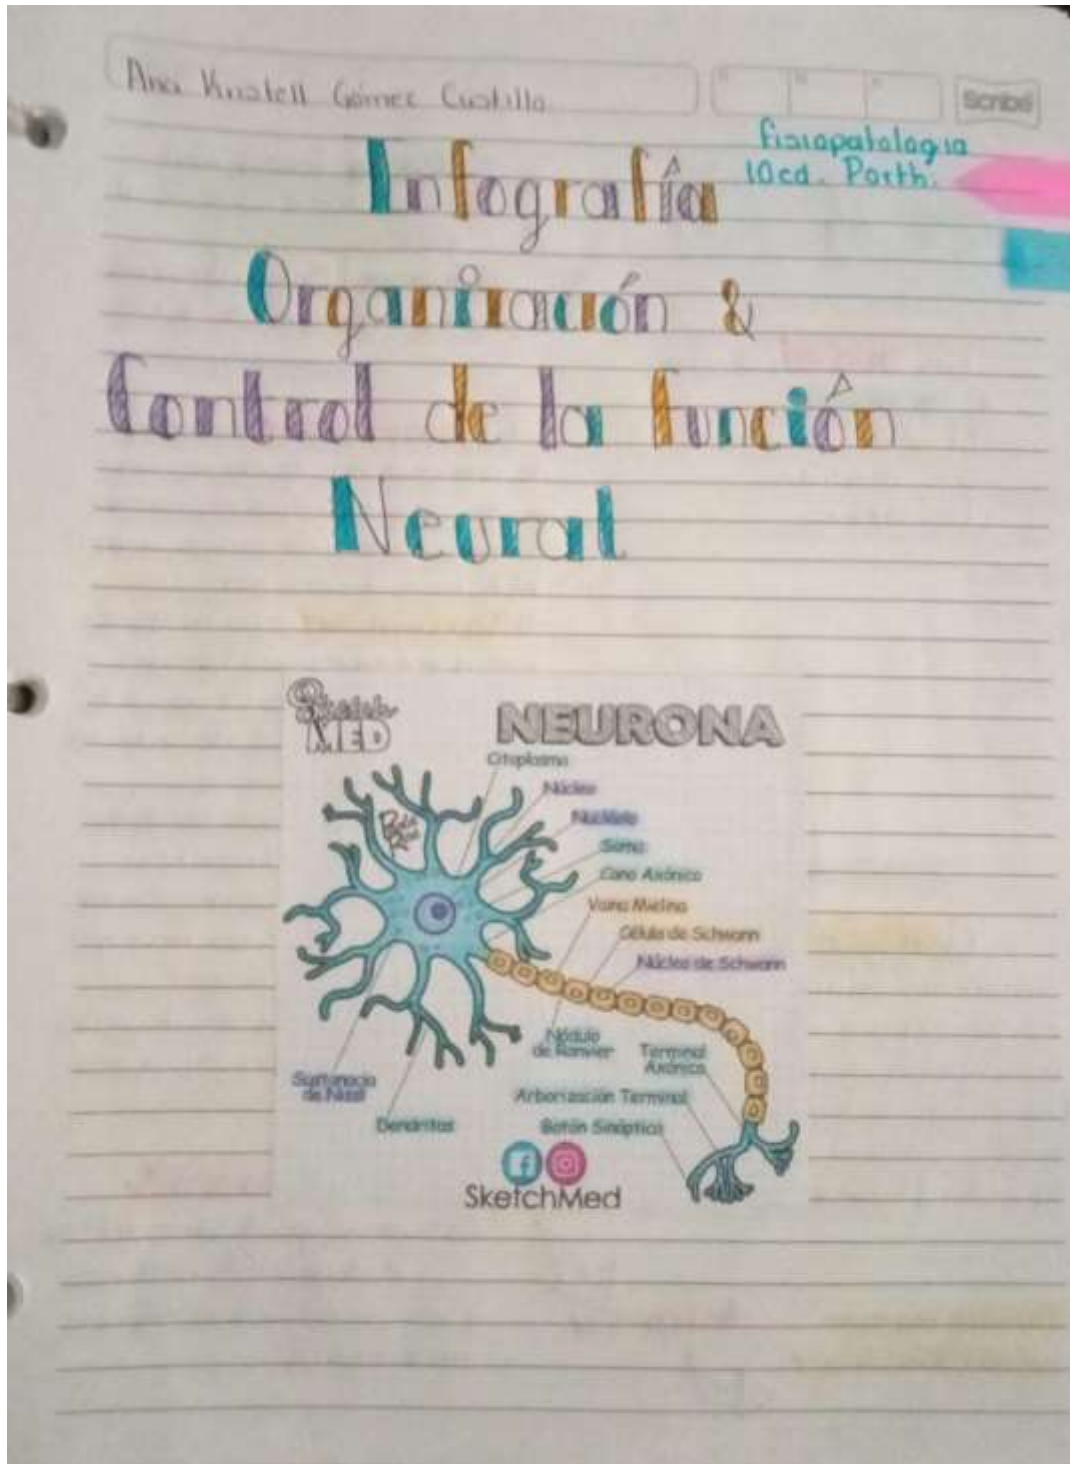 Ana Kristell Gómez Castillo
Scribe
Fisiopatologia
10ed. Porth.
Infografía
Organización &
Control de la función
Neural
Sketch
MED
NEURONA
Citoplasma
Núcleo
Nucléolo
Soma
Cono Axónico
Vaina Mielina
Célula de Schwann
Núcleo de Schwann
Nódulo
de Ranvier
Terminal
Axónica
Sustancia
de Nissl
Arborización Terminal
Dendritas
Botón Sináptico
SketchMed